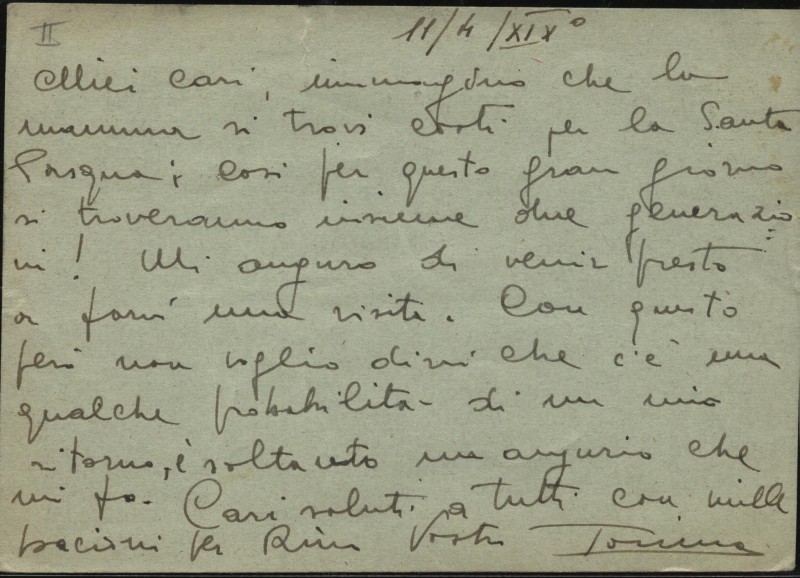 II
11/4/XIX°
Miei cari, immagino che la
mamma si trovi costì per la Santa
Pasqua; così per questo gran giorno
si troveranno insieme due generazio
ni! Mi auguro di venir presto
a farvi una visita. Con questo
però non voglio dirvi che c'è una
qualche probabilità di un mio
ritorno, è soltanto un augurio che
mi fo. Cari saluti a tutti con mille
bacioni per Vostro